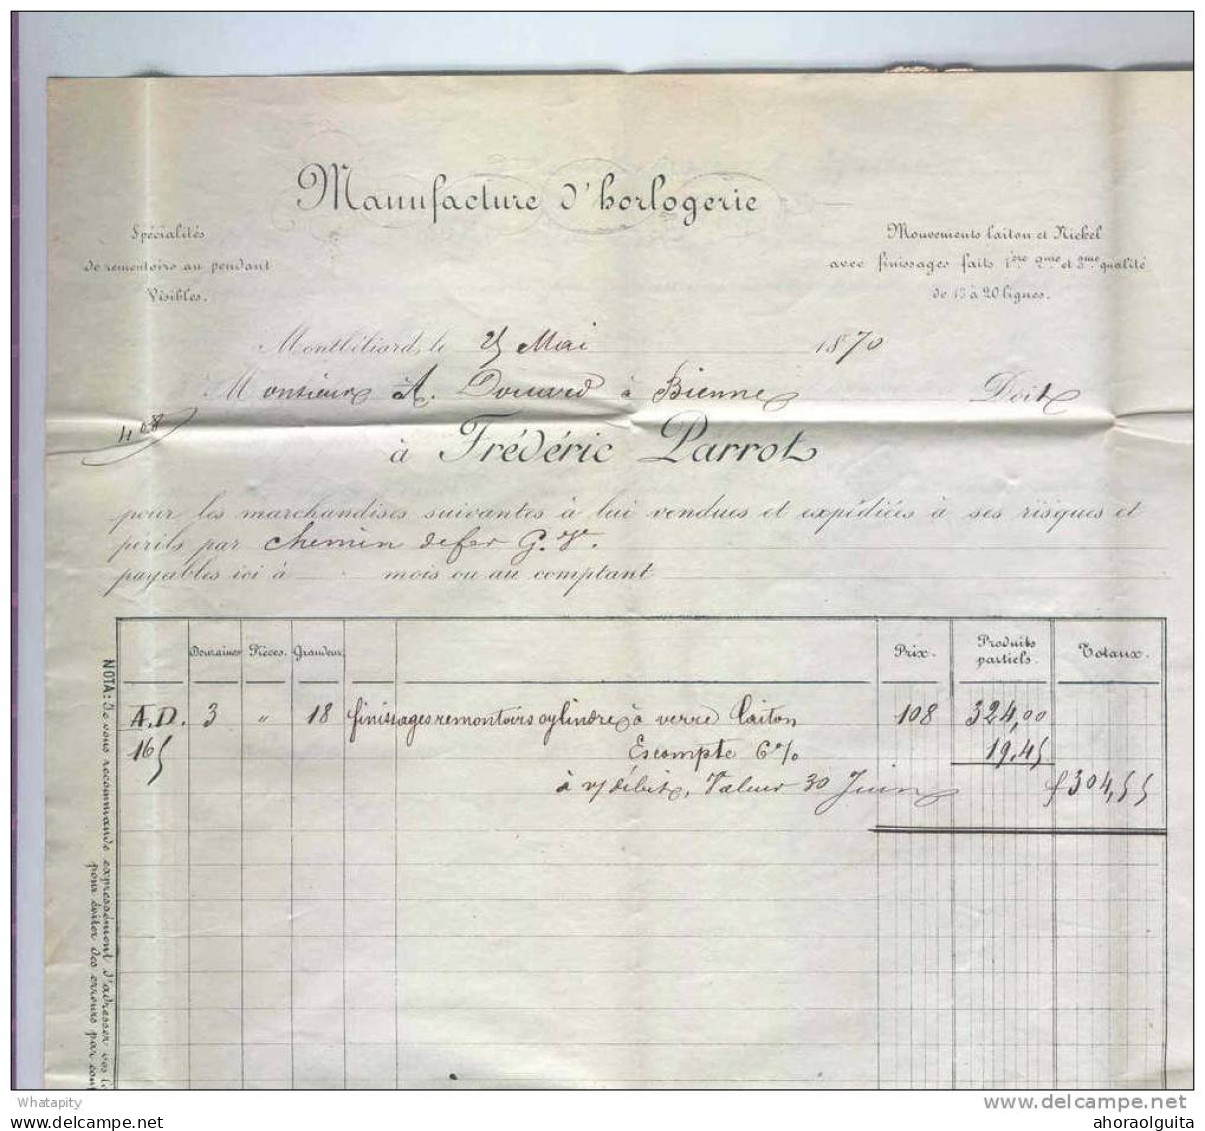 Manufacture d'horlogerie
Spécialités
de remontoirs au pendant
Visibles.
Mouvements laiton et Nickel
avec finissages faits 1ère 2me et 3me qualité
de 13 à 20 lignes.
Montbéliard, le 25 Mai 1870
Monsieur A. Douard à Bienne Doit
408
à Frédéric Parrot
pour les marchandises suivantes à lui vendues et expédiées à ses risques et
périls par chemin de fer G. V.
payables ici à mois ou au comptant
Douzaines Pièces. Grandeur. Prix. Produits partiels. Totaux.
A.D. 3 " 18 finissages remontoirs cylindre à verre laiton 108 324,00
165 Escompte 6% 19.45
à v/débit, Valeur 30 Juin f 304,55
NOTA: Je vous recommande expressément d'adresser vos
pour éviter des erreurs par
Whatapity
www.delcampe.net
ahoraolguita